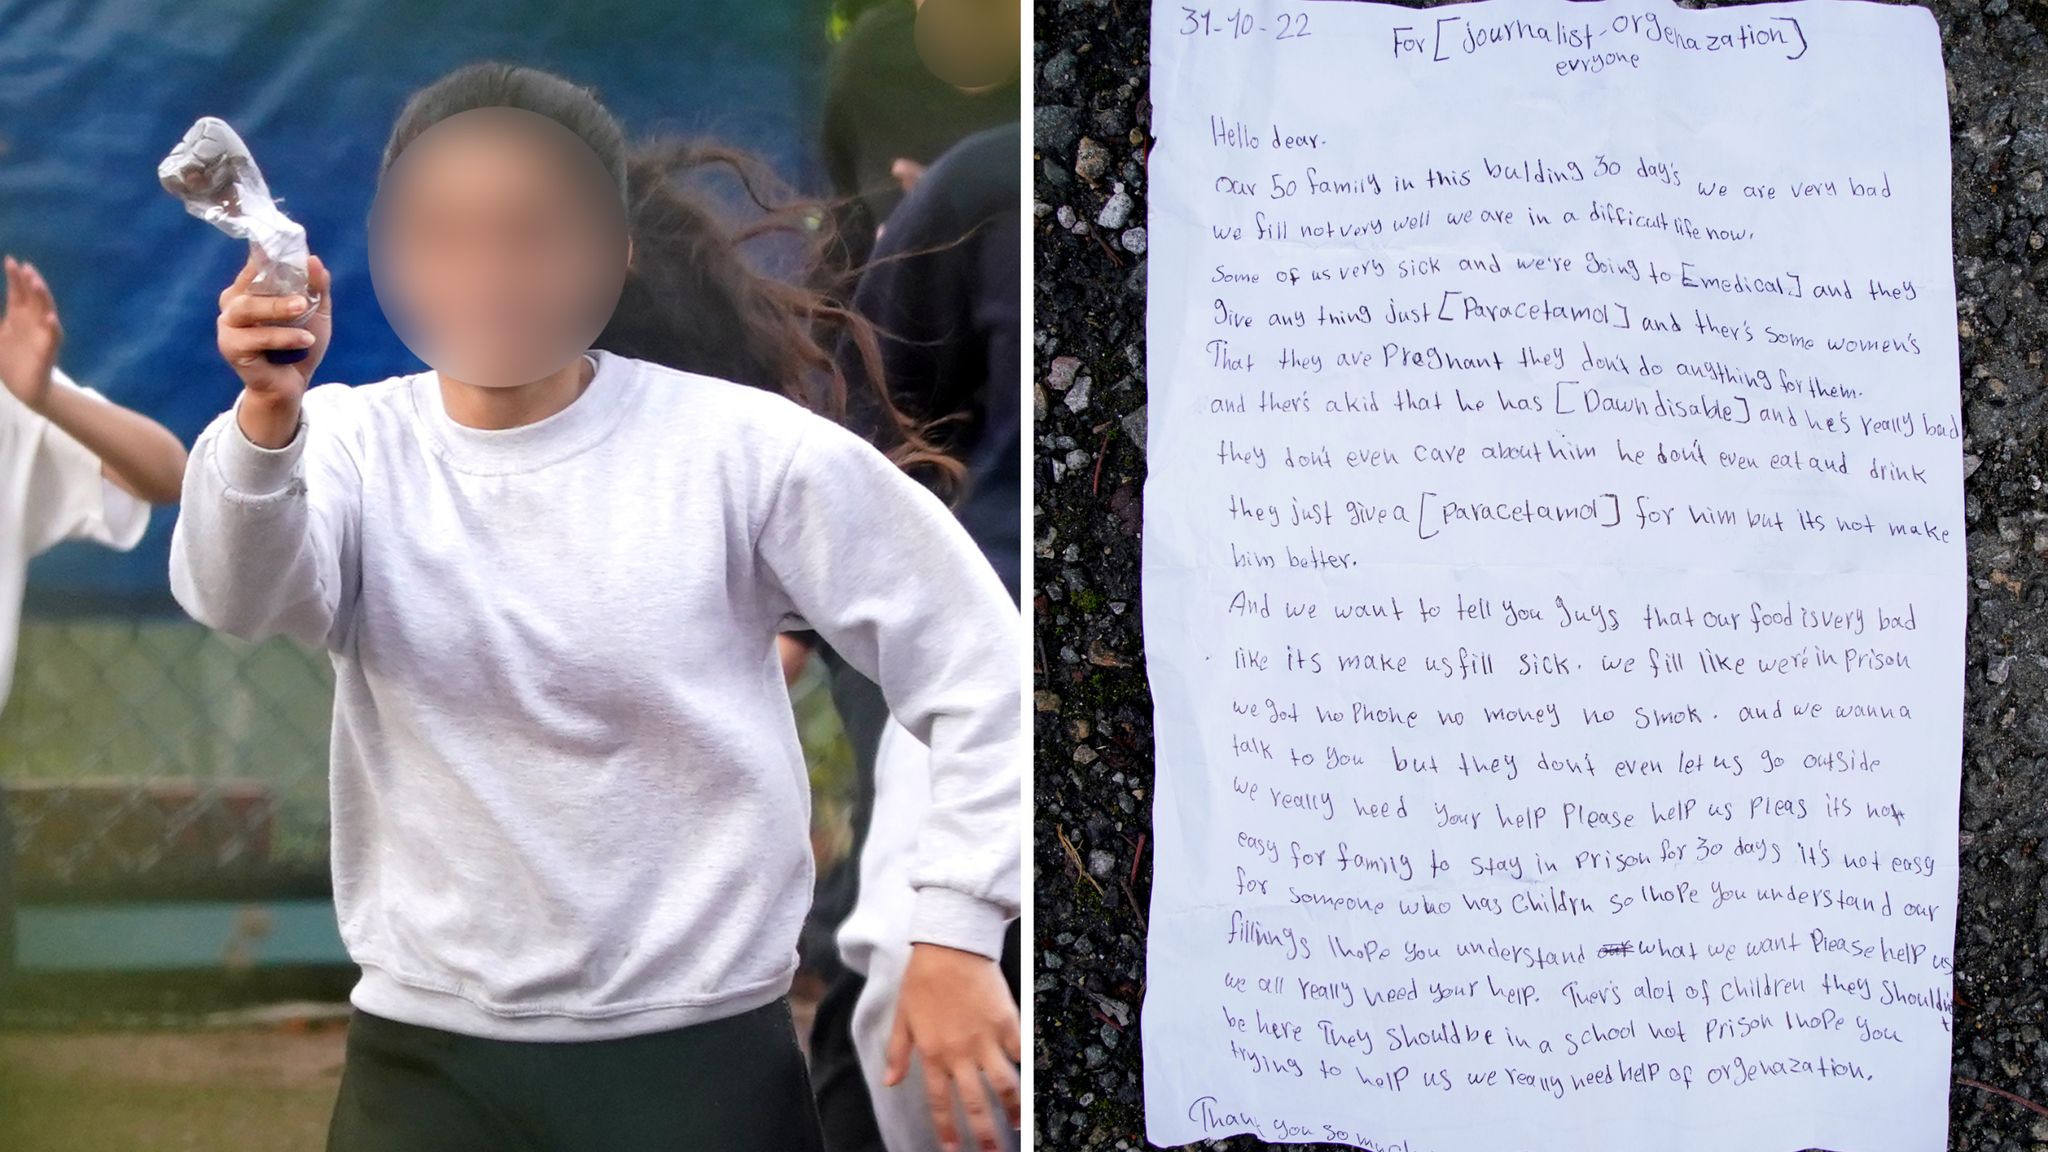 31-10-22
For [journalist-orgenazation]
evryone
Hello dear.
our 50 family in this bulding 30 day's we are very bad
we fill not very well we are in a difficult life now.
some of us very sick and we're going to [medical] and they
give any thing just [Paracetamol] and ther's some women's
That they are Pregnant they don't do angthing for them.
and ther's a kid that he has [Dawn disable] and he's really bad
they don't even care about him he don't even eat and drink
they just give a [paracetamol] for him but its not make
him better.
And we want to tell you guys that our food is very bad
like its make us fill sick. we fill like we're in prison
we got no Phone no money no smok. and we wanna
talk to you but they don't even let us go outside
we really need your help Please help us pleas its not
easy for family to stay in prison for 30 days it's not easy
for someone who has Childrn so I hope you understand our
fillinngs I hope you understand our what we want Please help us
we all really need your help. Ther's alot of Children they shouldn't
be here They should be in a school not prison I hope you
trying to help us we really need help of orgenazation.
Thank you so much